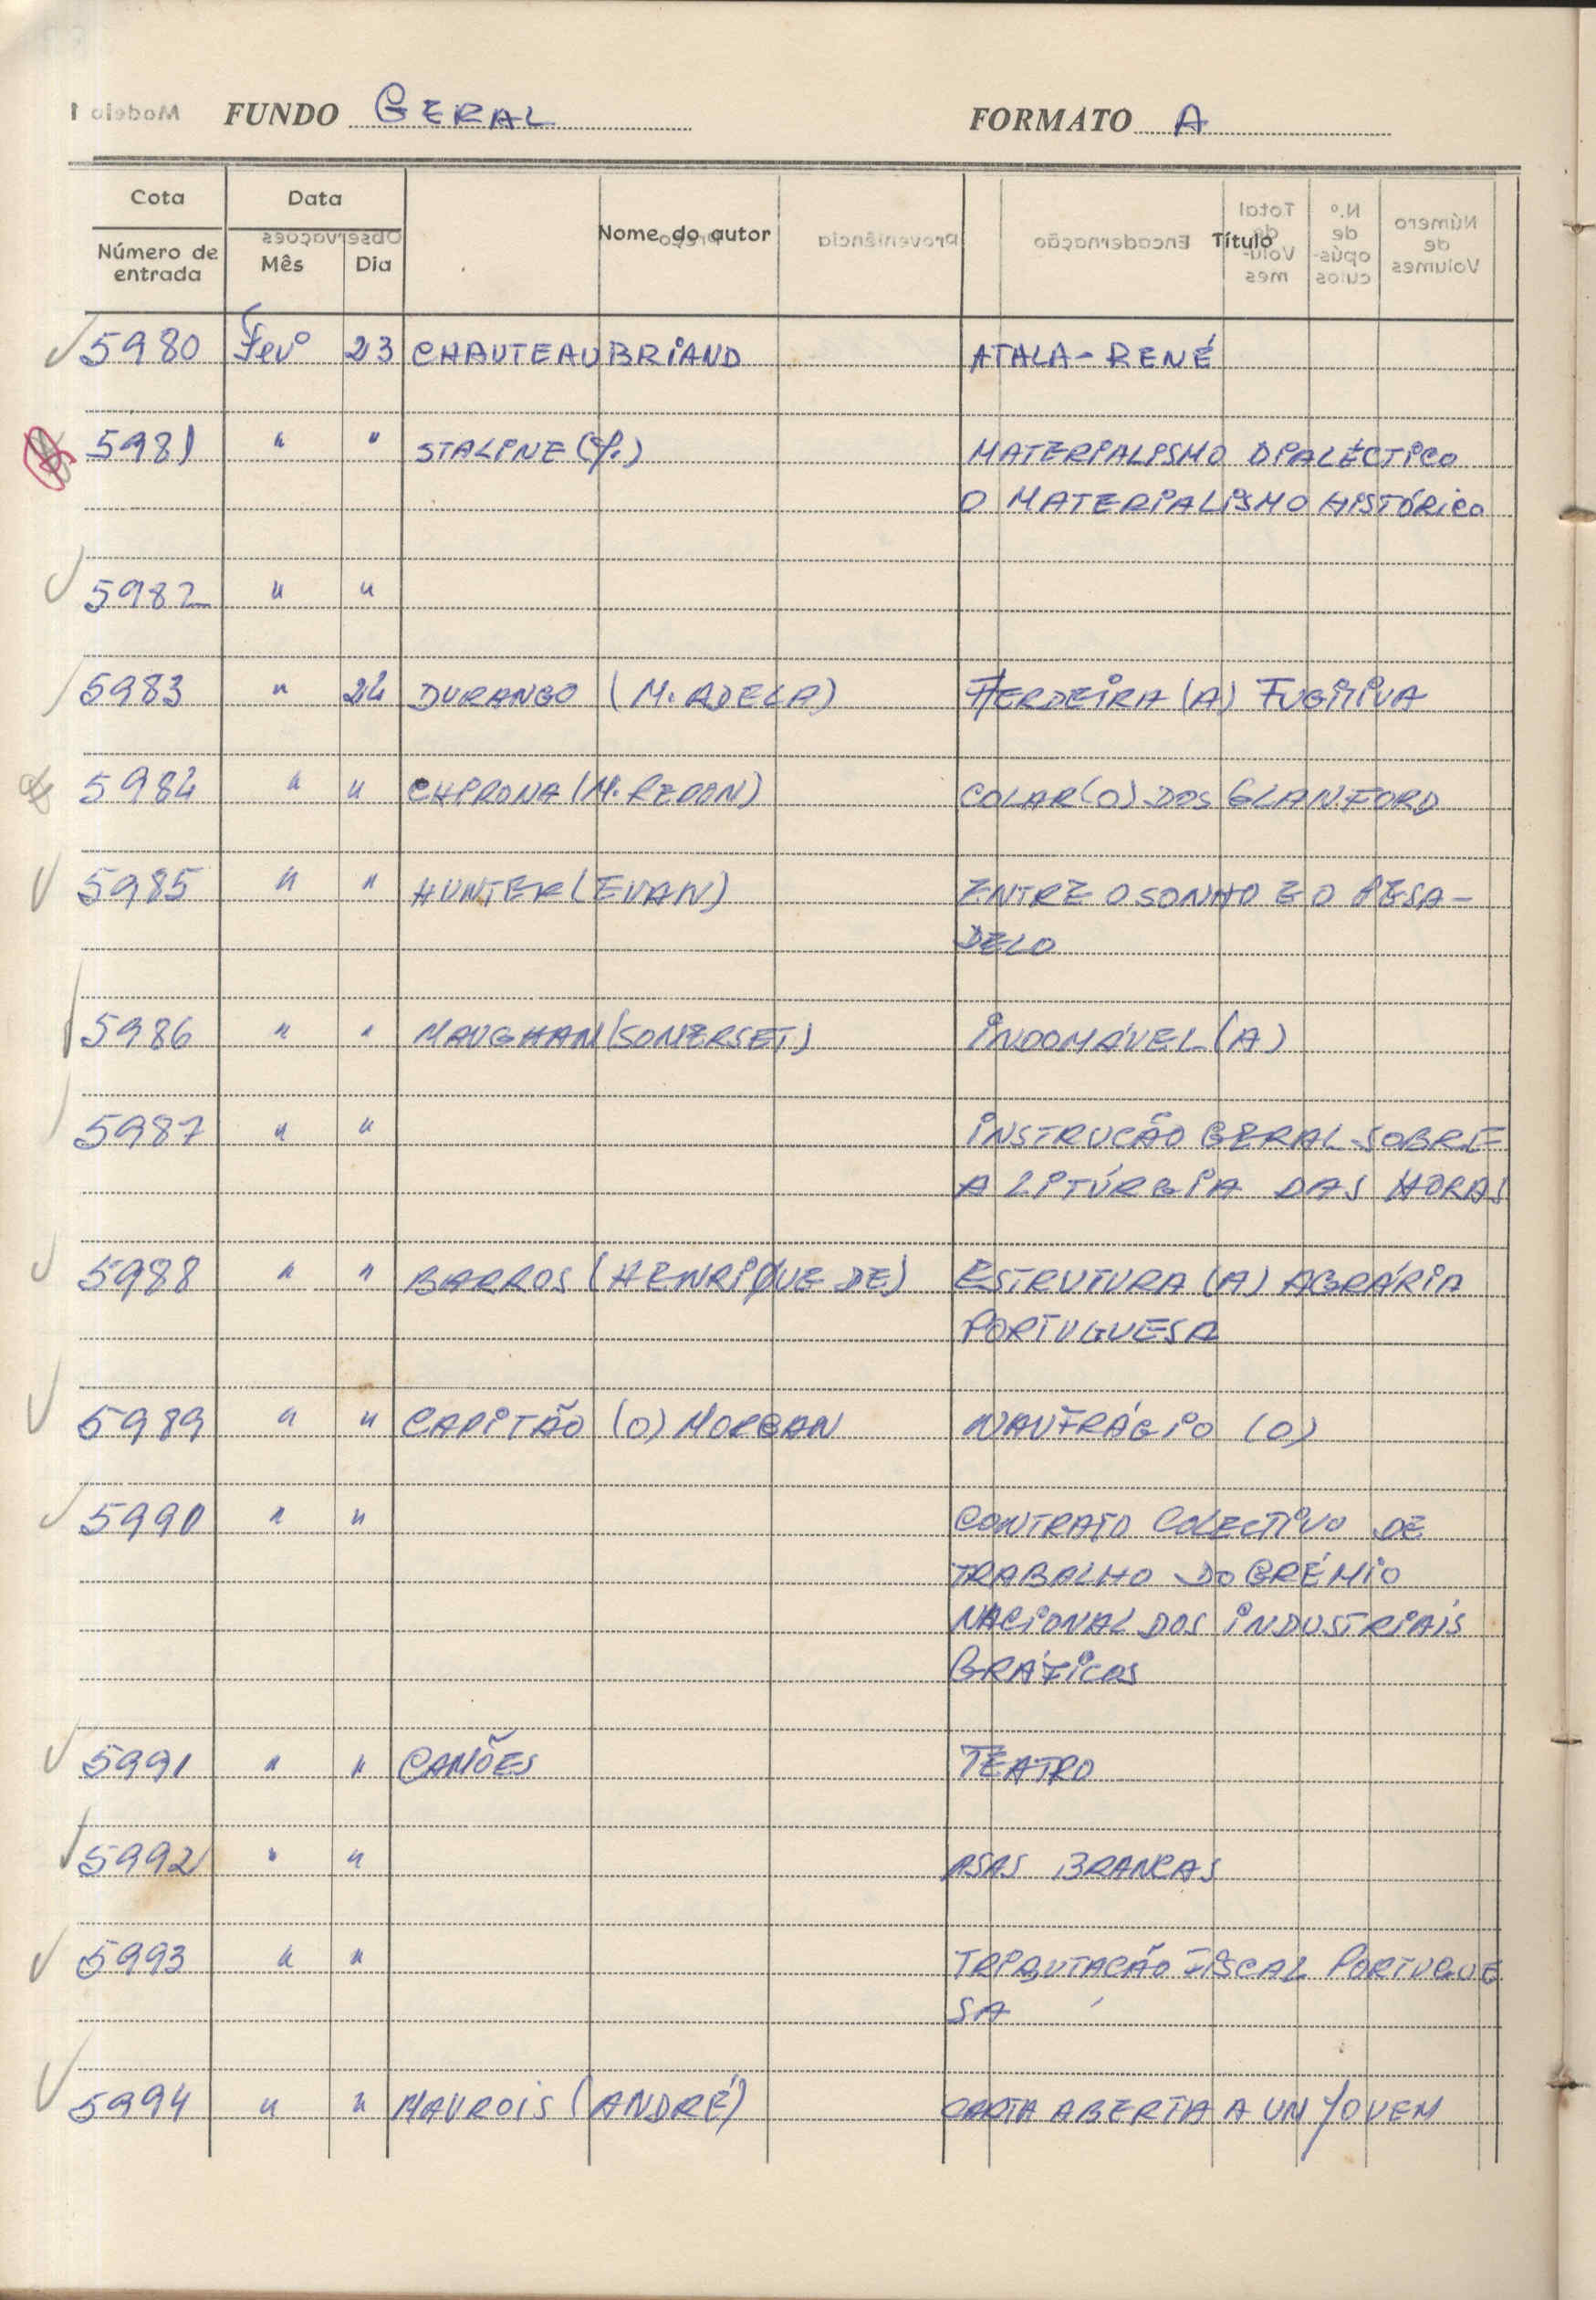 FUNDO GERAL FORMATO A
Modelo 1
Cota Data Nome do autor Título
Número de entrada Mês Dia
5980 Fevº 23 CHAUTEAUBRIAND ATALA-RENÉ
5981 " " STALINE (J.) MATERIALISMO DIALÉCTICO
O MATERIALISMO HISTÓRICO
5982 " "
5983 " 24 DURANGO (M. ADELA) HERDEIRA (A) FUGITIVA
5984 " " (M. REDON) COLAR (O) DOS GLANFORD
5985 " " HUNTER (EVAN) ENTRE O SONHO E O PESA-
DELO
5986 " " MAUGHAN (SOMERSET) INDOMÁVEL (A)
5987 " " INSTRUCÃO GERAL SOBRE
A LITÚRGIA DAS HORAS
5988 " " BARROS (HENRIQUE DE) ESTRUTURA (A) AGRÁRIA
PORTUGUESA
5989 " " CAPITÃO (O) MORGAN NAUFRÁGIO (O)
5990 " " CONTRATO COLECTIVO DE
TRABALHO DO GRÉMIO
NACIONAL DOS INDUSTRIAIS
GRÁFICOS
5991 " " CAMÕES TEATRO
5992 " " ASAS BRANCAS
5993 " " TRIBUTACÃO FISCAL PORTUGUE
SA
5994 " " MAUROIS (ANDRÉ) CARTA ABERTA A UM JOVEM